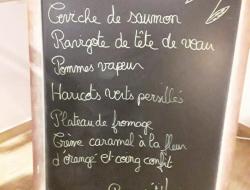 Ceviche de saumon
Ravigote de tête de veau
Pommes vapeur
Haricots verts persillés
Plateau de fromage
Crème caramel à la fleur
d'orange et coing confit